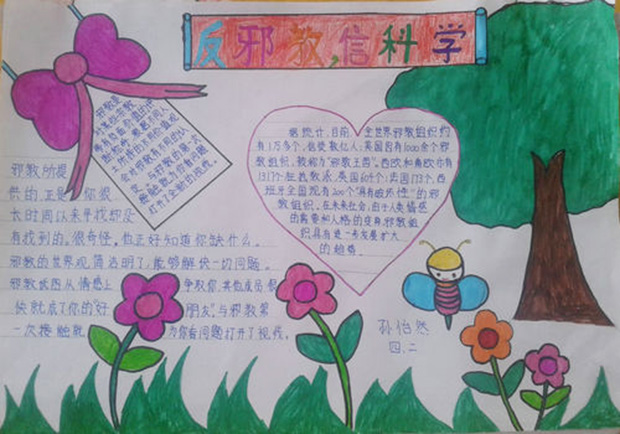 反邪教,信科学
邪教所提
供的正是 你很
长时间以来寻找却没
有找到的。很奇怪,他正好知道你缺什么。
邪教的世界观简洁明了,能够解快一切问题。
邪教或西从情感上 争取你,其他成员很
快就成了你的“好 朋友”与邪教第
一次接触就 为你看问题打开了视线。
据统计,目前 全世界邪教组织约
有1万多个,信徒数亿人:美国因有1000余个邪
教组织,被称为“邪教王国”。西欧和南欧亦有
1317个狂热教派,英国604个;法国173个,西
班牙全国现有200个“具有破坏性”的邪
教组织。在未来社会,由于人类情感
的需要和人格的变异,邪教组
织具有进一步发展扩大
的趋势
孙怡然
四.二